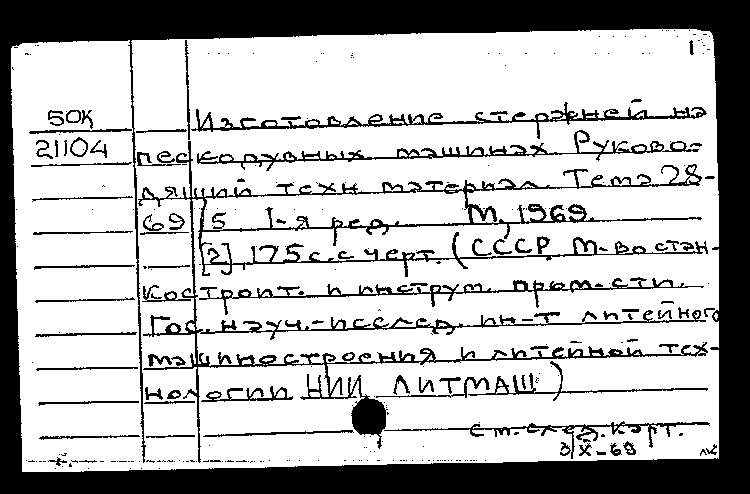 1
50К Изготовление стержней на
21104 пескодувных машинах Руково-
дящий техн материал. Тема 28-
69/5 1-я ред. М, 1969.
[2], 175 с. с черт. (СССР. М-во стан-
костроит. и инструм. пром-сти.
Гос. науч.-исслед. ин-т литейного
машиностроения и литейной тех-
нологии НИИ ЛИТМАШ)
См. след. карт.
3/X-69